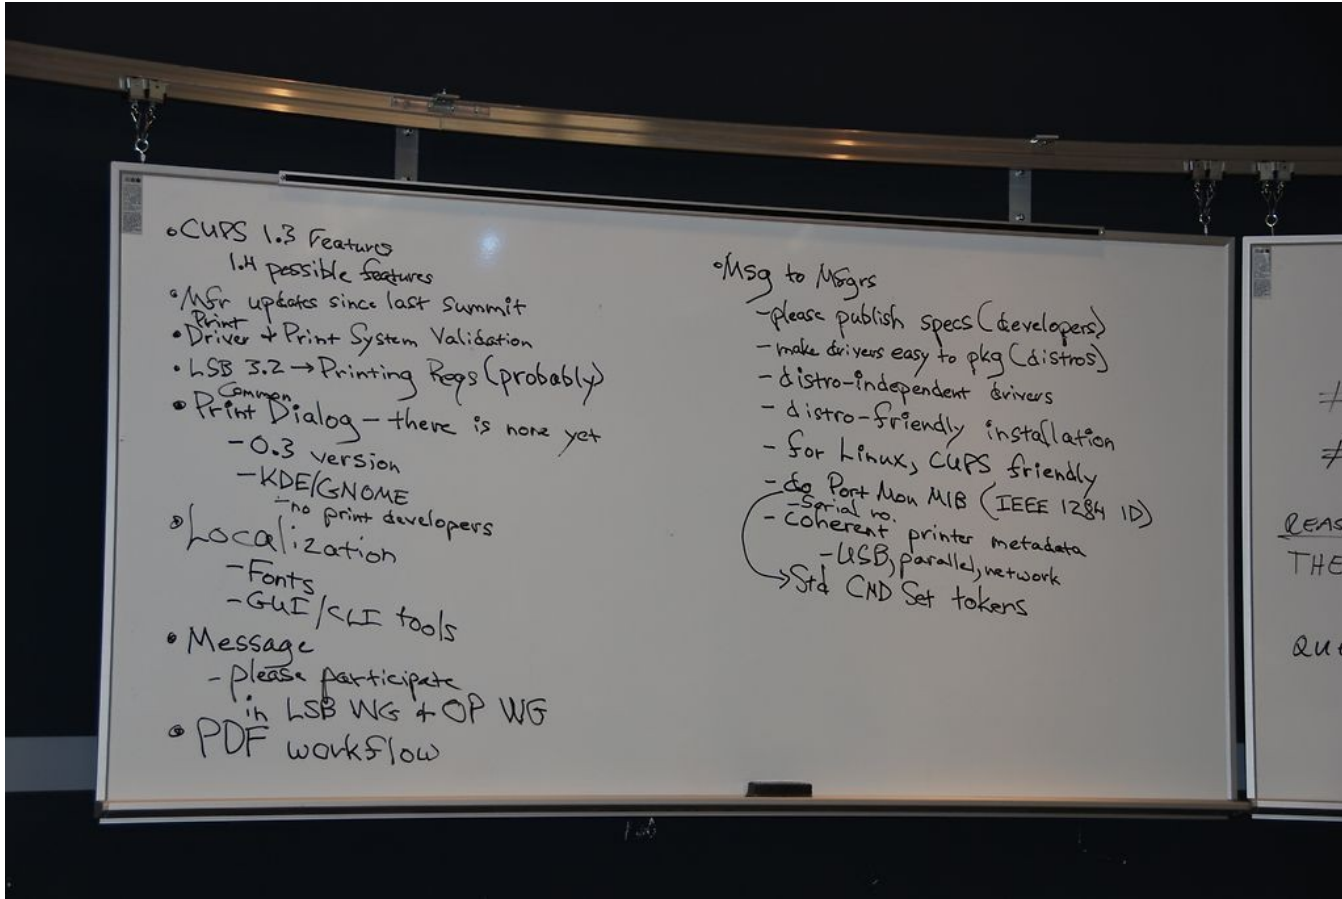 • CUPS 1.3 Features
1.4 possible features
• Mfr updates since last summit
Print
• Driver + Print System Validation
• LSB 3.2 → Printing Reqs (probably)
Common
• Print Dialog – there is none yet
– 0.3 version
– KDE/GNOME
– no print developers
• Localization
– Fonts
– GUI/CLI tools
• Message
– please participate
in LSB WG + OP WG
• PDF workflow
• Msg to Mfgrs
– please publish specs (developers)
– make drivers easy to pkg (distros)
– distro-independent drivers
– distro-friendly installation
– for Linux, CUPS friendly
– do Port Mon MIB (IEEE 1284 ID)
– Serial no.
– coherent printer metadata
– USB, parallel, network
→ Std CMD Set tokens
≠
≠
REAS
THE
QU